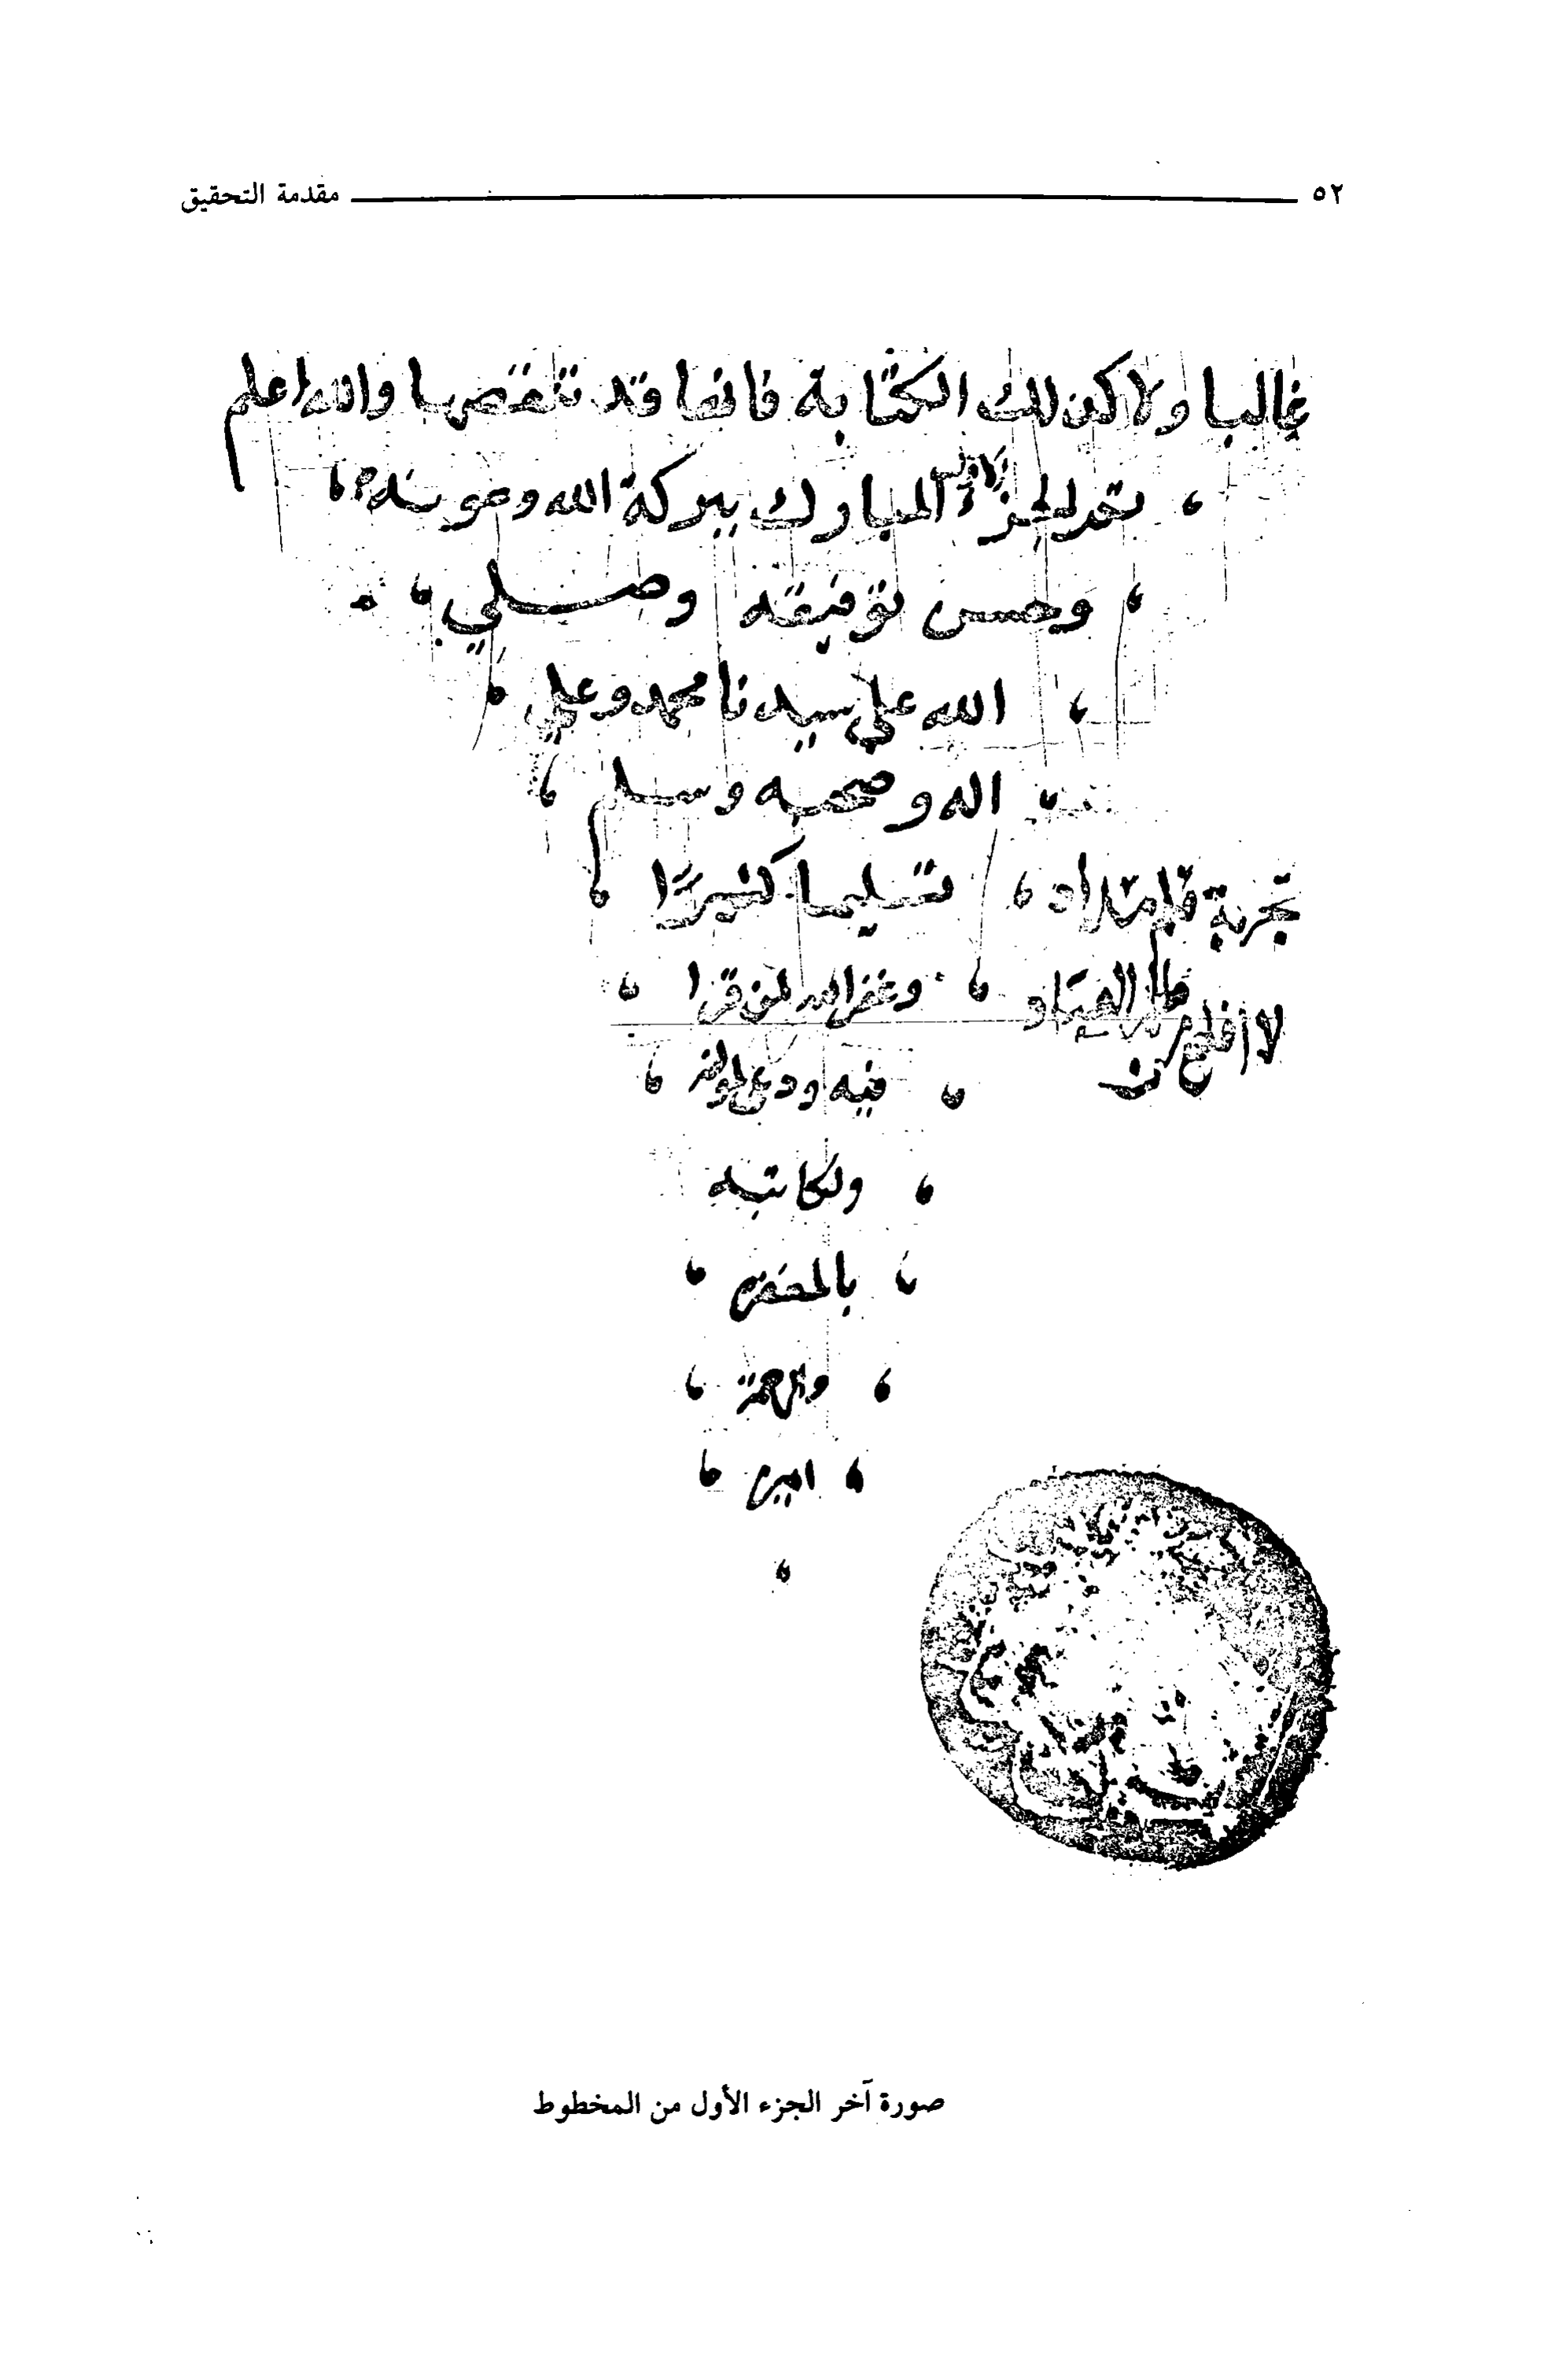 ٥٢ مقدمة التحقيق
غالبا ولا كذلك الكتابة فانها قد تنقصها والله اعلم
تم الجزء الاول المبارك ببركة الله وعونه
وحسن توفيقه وصلي
الله علي سيدنا محمد وعلي
اله وصحبه وسلم
تسليما كثيرًا
وغفر الله لمن قرا
فيه ودعى لمؤلفه
ولكاتبه
بالمغفرة
والرحمة
امين
تجربة قلم
لا افلح من
صورة آخر الجزء الأول من المخطوط